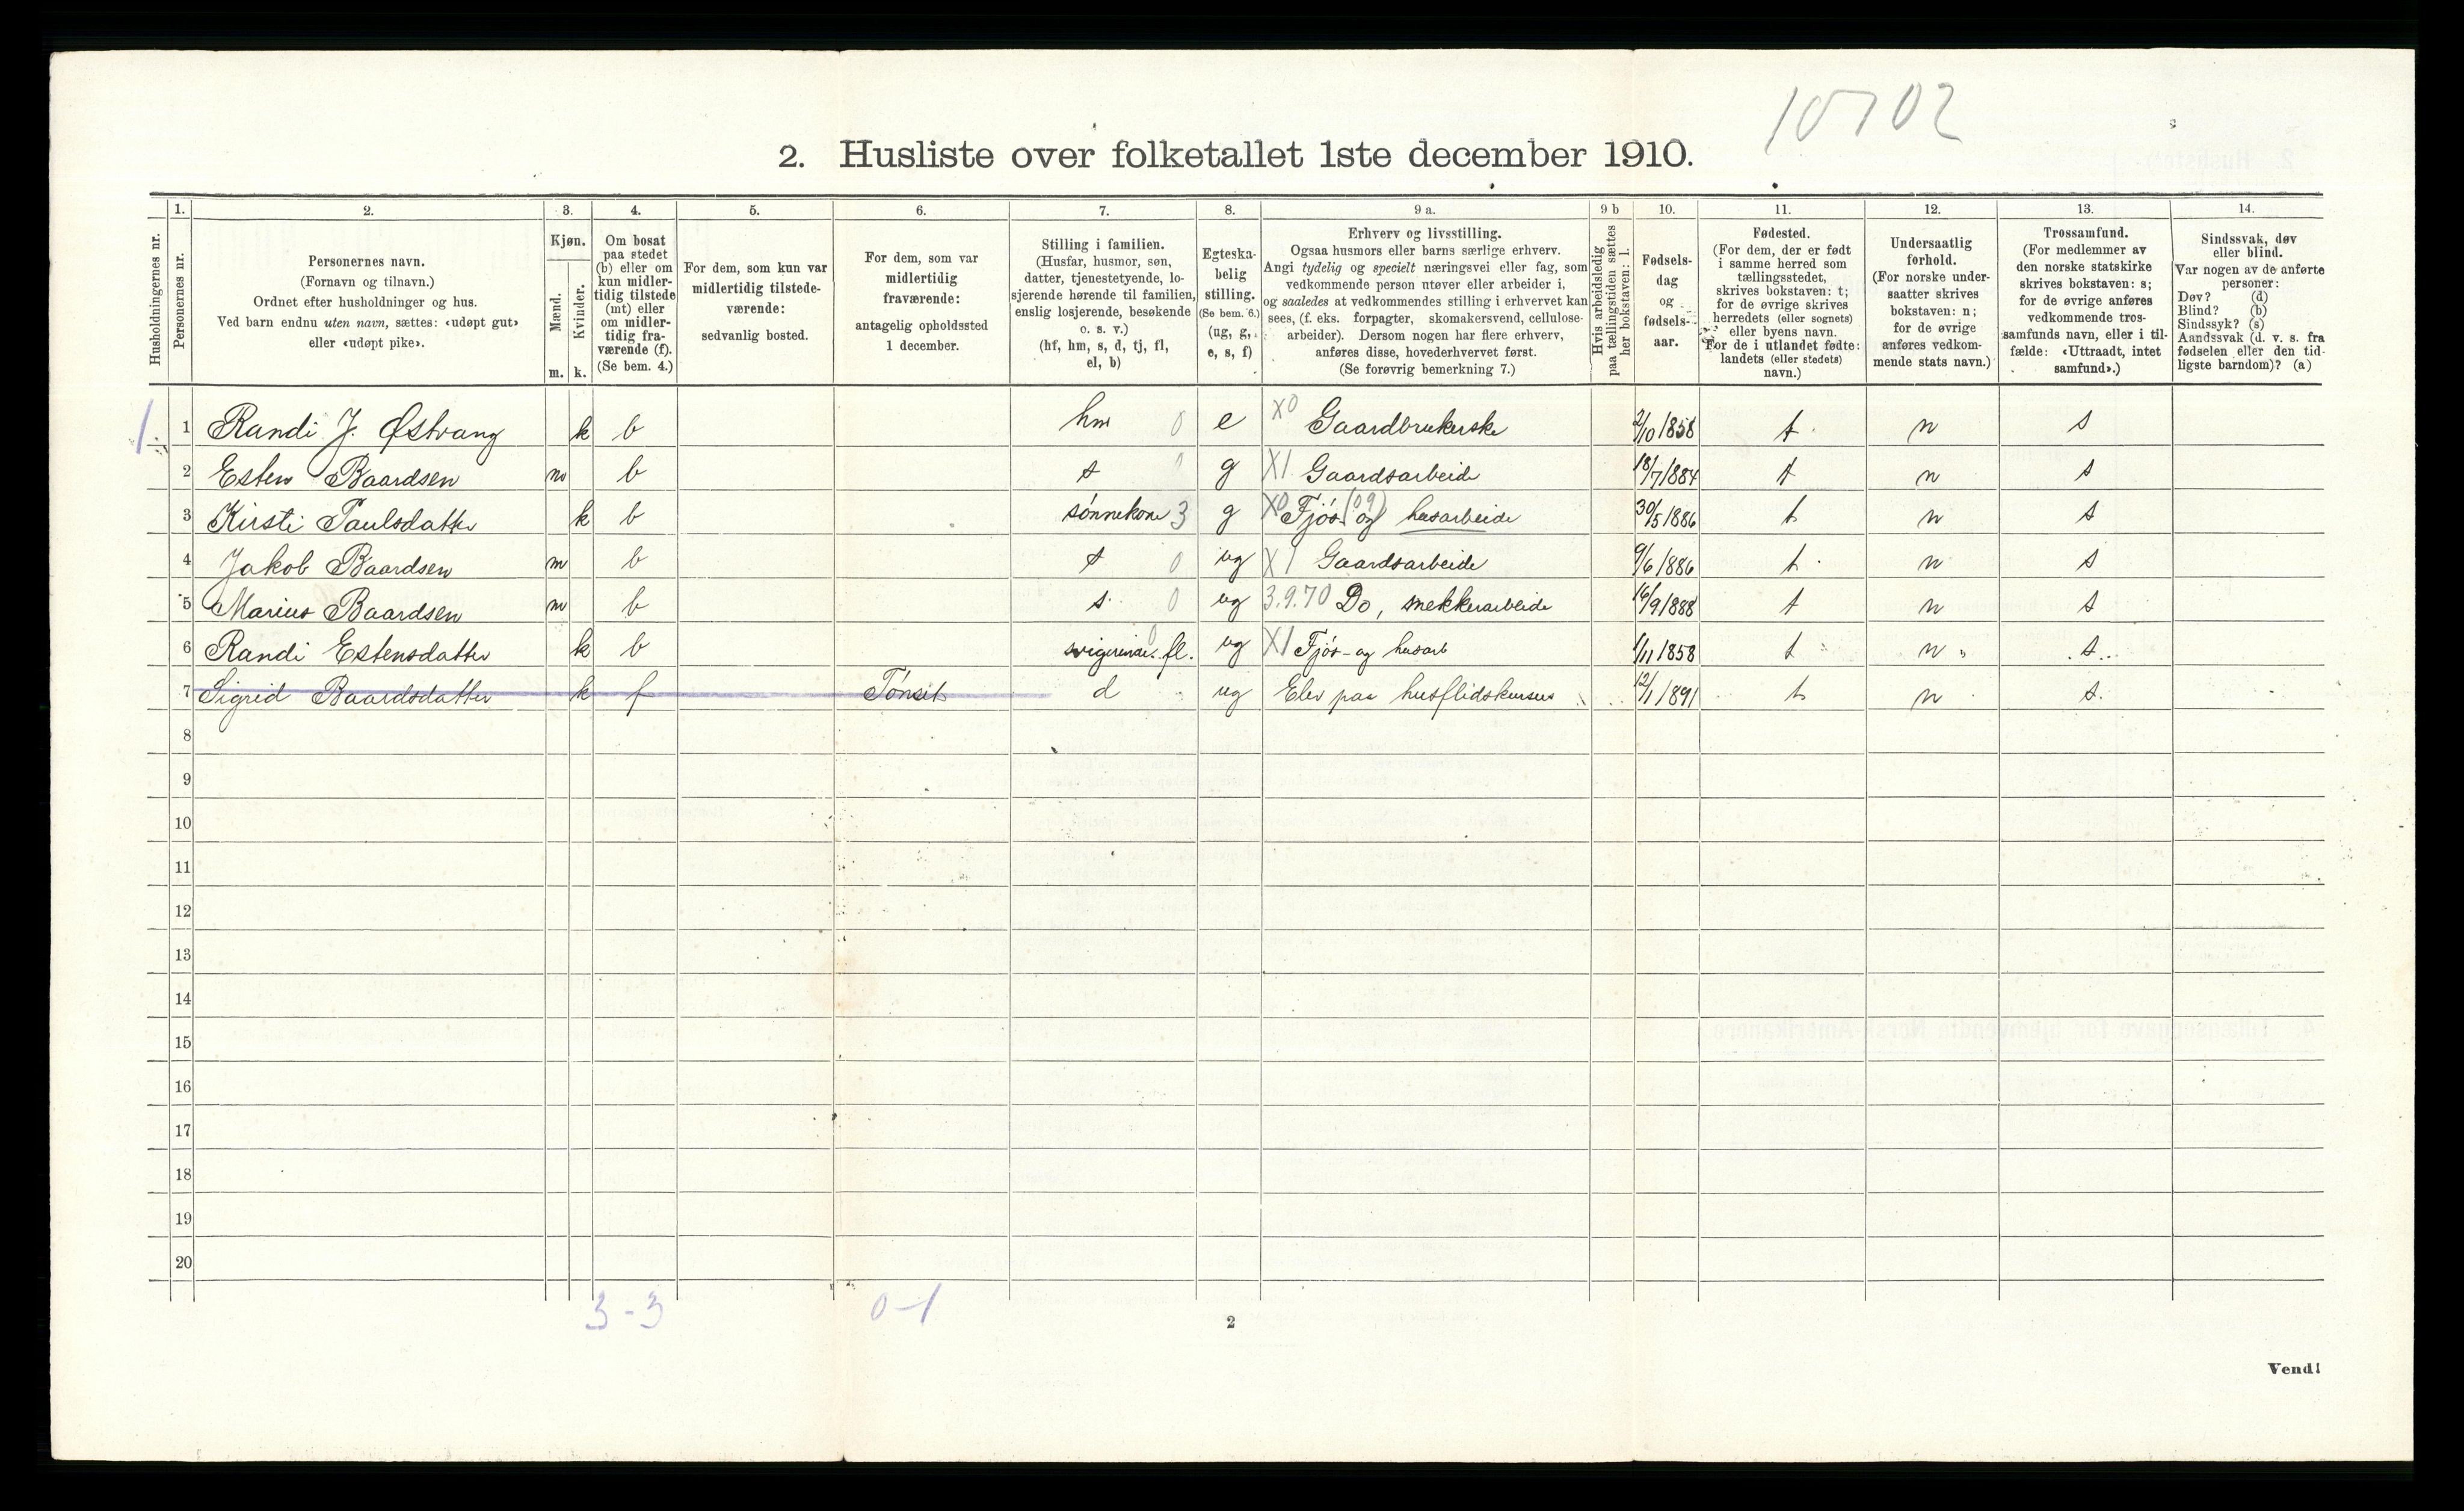 10702
2. Husliste over folketallet 1ste december 1910.
1. 2. 3. 4. 5. 6. 7. 8. 9 a. 9 b 10. 11. 12. 13. 14.
Husholdningernes nr.
Personernes nr.
Personernes navn.
(Fornavn og tilnavn.)
Ordnet efter husholdninger og hus.
Ved barn endnu uten navn, sættes: «udøpt gut»
eller «udøpt pike».
Kjøn.
Mænd.
Kvinder.
m. k.
Om bosat
paa stedet
(b) eller om
kun midler-
tidig tilstede
(mt) eller
om midler-
tidig fra-
værende (f).
(Se bem. 4.)
For dem, som kun var
midlertidig tilstede-
værende:
sedvanlig bosted.
For dem, som var
midlertidig
fraværende:
antagelig opholdssted
1 december.
Stilling i familien.
(Husfar, husmor, søn,
datter, tjenestetyende, lo-
sjerende hørende til familien,
enslig losjerende, besøkende
o. s. v.)
(hf, hm, s, d, tj, fl,
el, b)
Egteska-
belig
stilling.
(Se bem. 6.)
(ug, g,
e, s, f)
Erhverv og livsstilling.
Ogsaa husmors eller barns særlige erhverv.
Angi tydelig og specielt næringsvei eller fag, som
vedkommende person utøver eller arbeider i,
og saaledes at vedkommendes stilling i erhvervet kan
sees, (f. eks. forpagter, skomakersvend, cellulose-
arbeider). Dersom nogen har flere erhverv,
anføres disse, hovederhvervet først.
(Se forøvrig bemerkning 7.)
Hvis arbeidsledig
paa tællingstiden sættes
her bokstaven: l.
Fødsels-
dag
og
fødsels-
aar.
Fødested.
(For dem, der er født
i samme herred som
tællingsstedet,
skrives bokstaven: t;
for de øvrige skrives
herredets (eller sognets)
eller byens navn.
For de i utlandet fødte:
landets (eller stedets)
navn.)
Undersaatlig
forhold.
(For norske under-
saatter skrives
bokstaven: n;
for de øvrige
anføres vedkom-
mende stats navn.)
Trossamfund.
(For medlemmer av
den norske statskirke
skrives bokstaven: s;
for de øvrige anføres
vedkommende tros-
samfunds navn, eller i til-
fælde: «Uttraadt, intet
samfund».)
Sindssvak, døv
eller blind.
Var nogen av de anførte
personer:
Døv? (d)
Blind? (b)
Sindssyk? (s)
Aandssvak (d. v. s. fra
fødselen eller den tid-
ligste barndom)? (a)
1 1 Randi J. Østvang k b hm 0 e X0 Gaardbrukerske 2/10 1858 t n s
2 Esten Baardsen m b s 0 g X1 Gaardsarbeide 18/7 1884 t n s
3 Kirsti Paulsdatter k b sønnekone 3 g X0 Fjøs- (09) og husarbeide 30/5 1886 t n s
4 Jakob Baardsen m b s 0 ug X1 Gaardsarbeide 9/6 1886 t n s
5 Marius Baardsen m b s 0 ug 3.9.70 Do, snekkerarbeide 16/9 1888 t n s
6 Randi Estensdatter k b 0 fl. ug X1 Fjøs- og husarb 1/11 1858 t n s
7 Sigrid Baardsdatter k f Tønset d ug Elev paa husflidskursus 12/1 1891 t n s.
8
9
10
11
12
13
14
15
16
17
18
19
20
3-3 0-1
2
Vend!